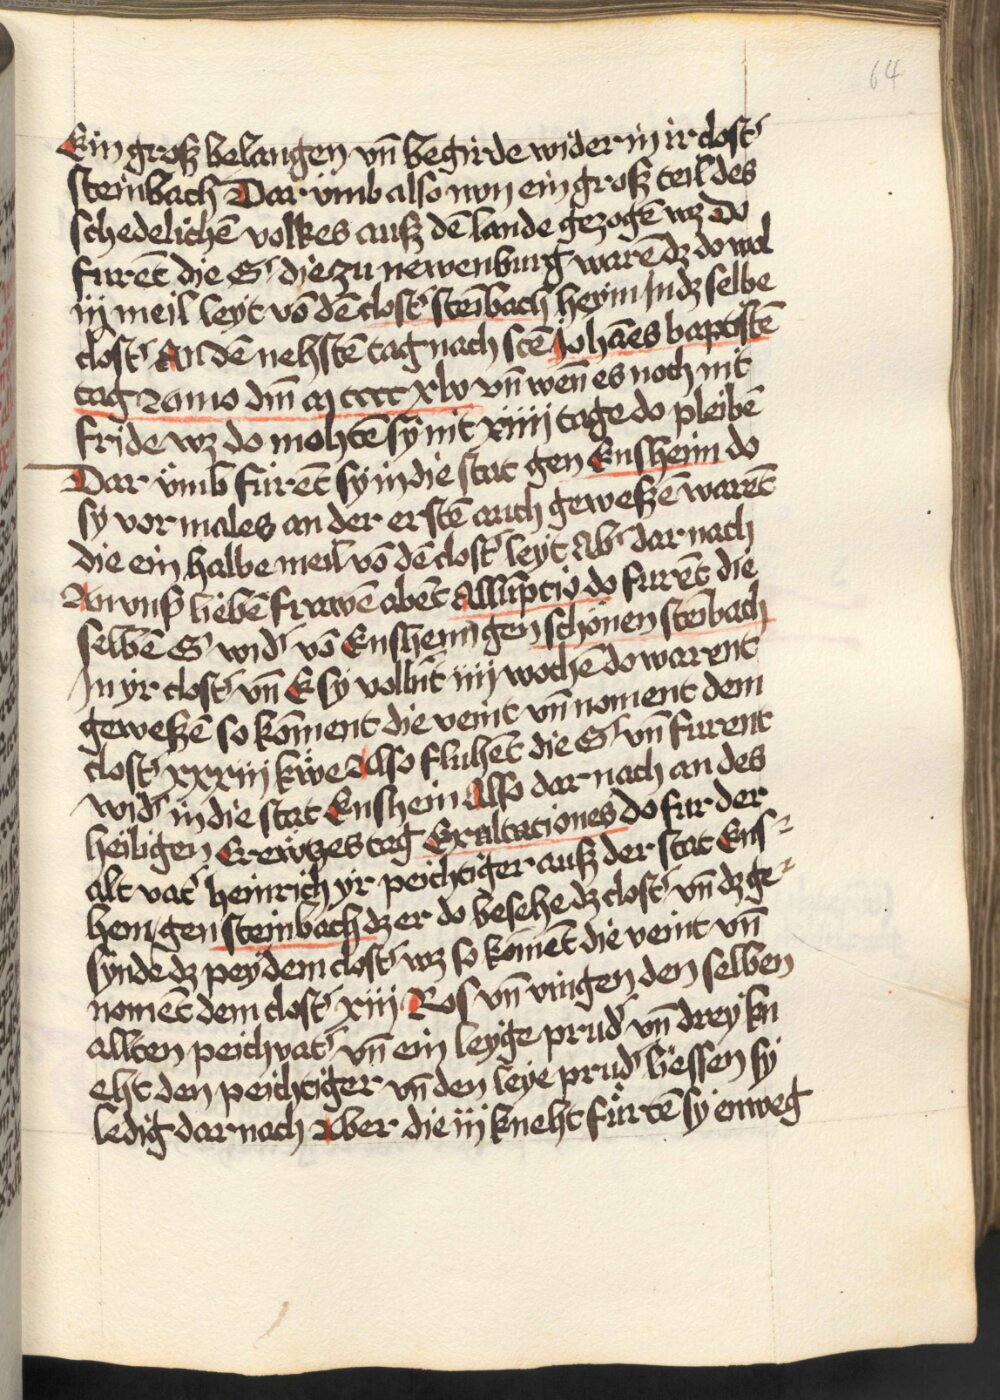 64
Ein groß belangen vn̄ begirde wider in ir clost᷑
steinbach Dar vmb also nun ein groß teil des
schedelichē volkes auß dē lande gezogē wz Do
furēt die S᷑ die zu newenburg warē dz do wol
iij meil leyt vō dē clost᷑ steībach heym In dz selbe
clost᷑ An dē nehstē tag nach sctē Johāes baptistē
tag Anno dm̄ m cccc xlv vn̄ wen̄ es noch nit
fride wz do mohtē sy nit xiiij tage do pleibē
Dar vmb fürēt sy in die stat gen Ensheim do
sy vor males an der erstē auch geweßē warēt
die ein halbe meil vō dē clost᷑ leyt Ab᷑ dar nach
An vnß liebē frawē abēt Assūptio do furēt die
selbē S᷑ wid᷑ vō Ensheim gen schönen steībach
In yr clost᷑ vn̄ E sy volbn̄t iiij wochē do warent
geweßē so kōment die veint vn̄ noment dem
clost᷑ xxxiij kwe Also fluhēt die S᷑ vn̄ furent
wid᷑ in die stat Enshein Also dar nach an des
heiligen Crewtzes tag Exaltationes do fur der
alt vat᷑ heinrich yr peichtiger auß der stat Ens
hem gen steinbach dz er do besehe dz clost᷑ vn̄ dz ge
synde dz pey dem clost᷑ wz so kōmēt die veint vn̄
nomēt dem clost᷑ xiij Ros vn̄ vingen den selben
allten peichvat᷑ vn̄ ein leyge prud᷑ vn̄ drey kn
eht den peichtiger vn̄ den leye prud᷑ liessen sy
ledig dar nach Aber die iij kneht fürtē sy enweg